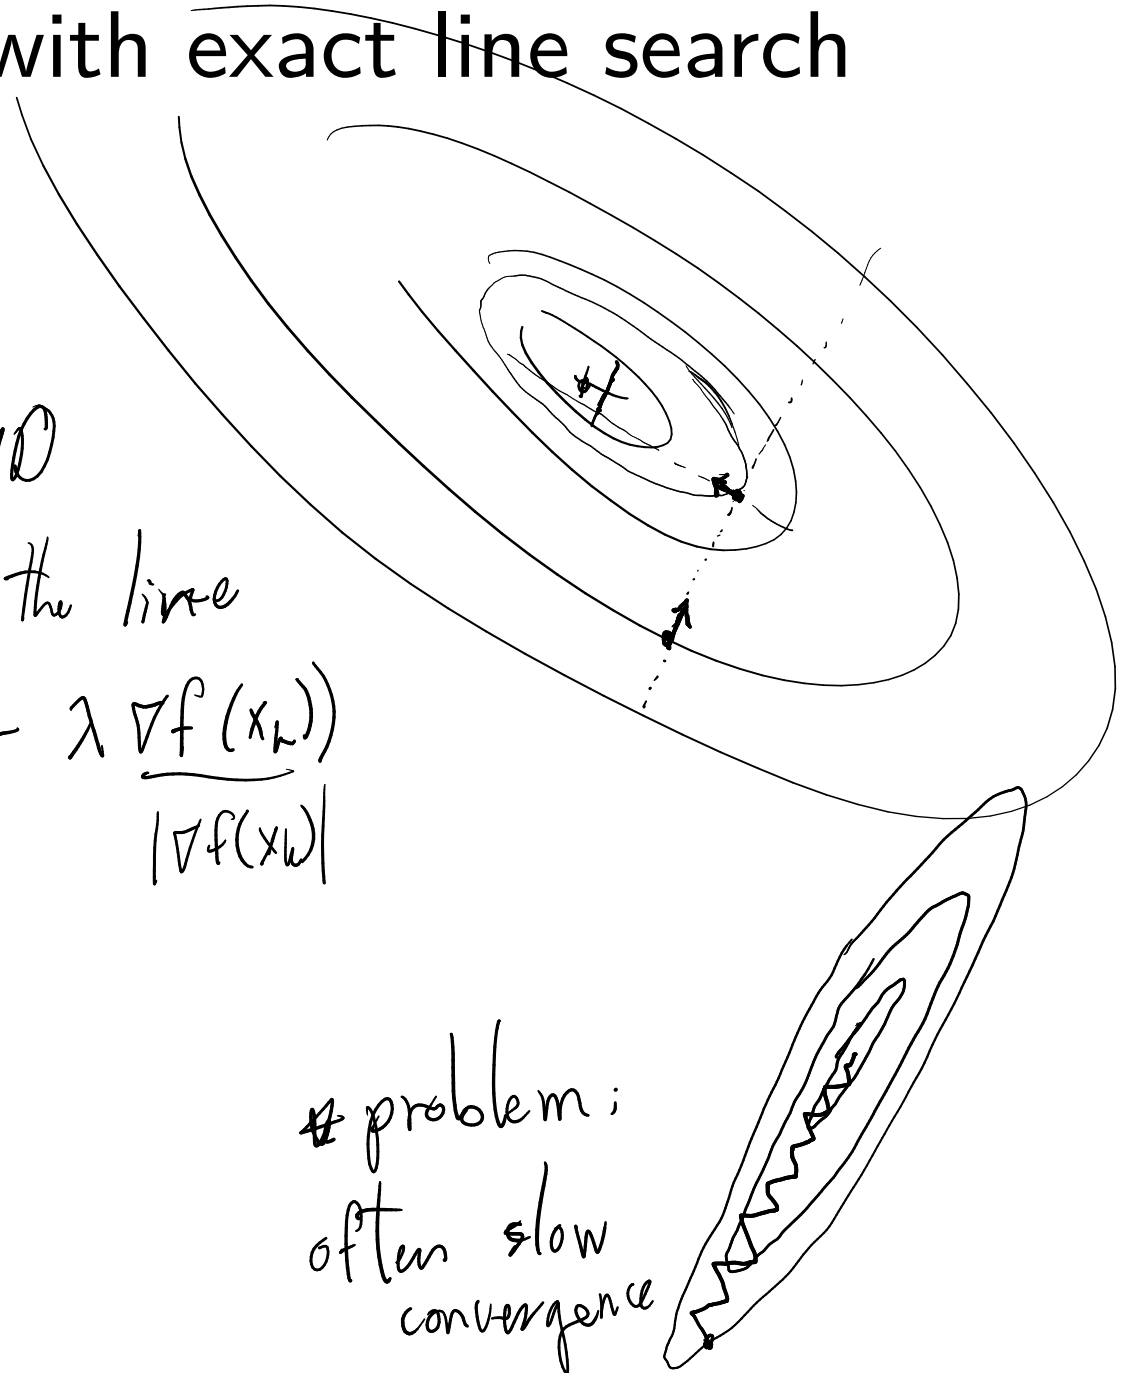 with exact line search
the line
- λ ∇f(x_k))
|∇f(x_k)|
problem:
often slow
convergence